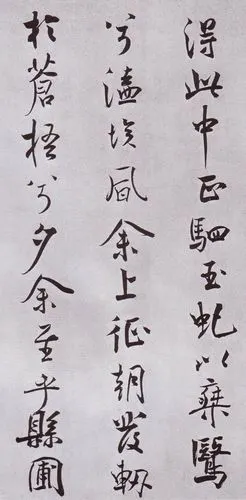 得此中正駟玉虬以椉鷖
兮溘埃風余上征朝發軔
於蒼梧兮夕余至乎縣圃